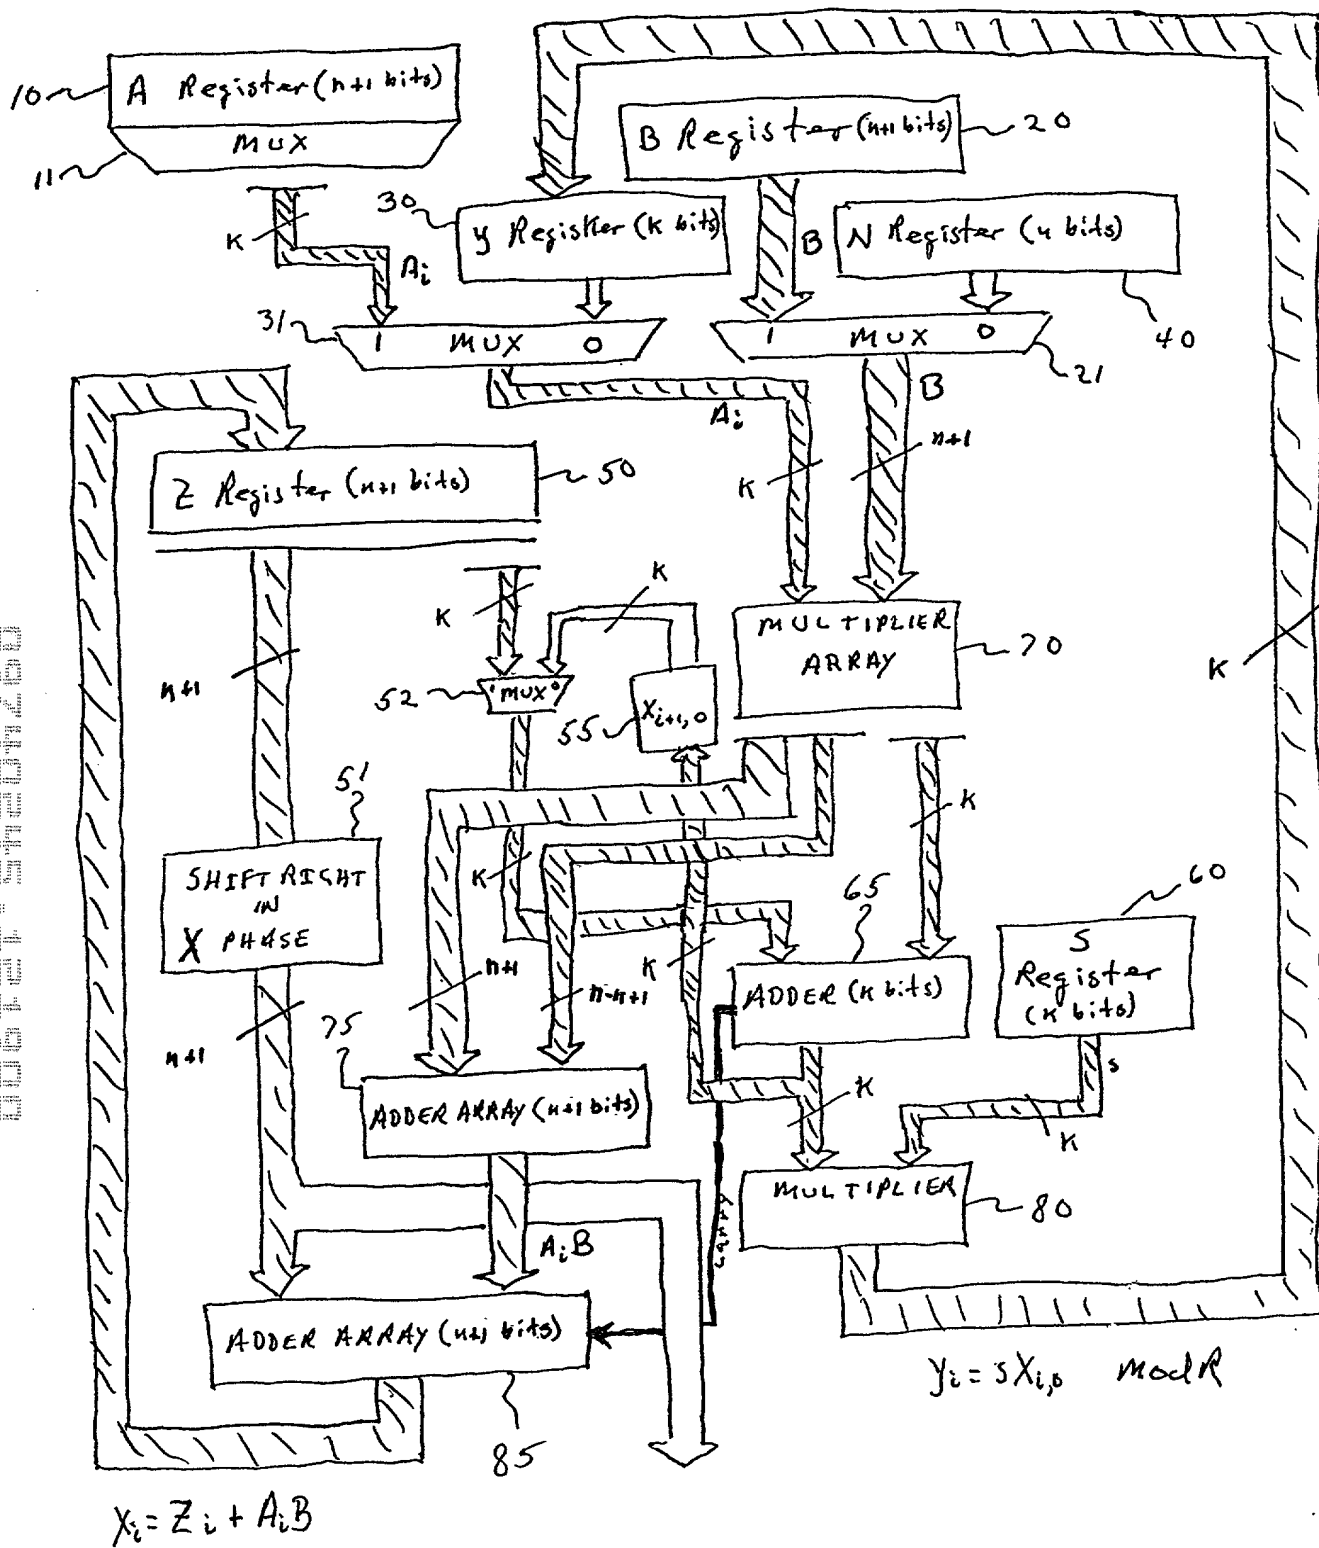 10
A Register (n+1 bits)
MUX
11
K
Ai
B Register (n+1 bits)
20
30
y Regisker (k bits)
B
N Register (n bits)
40
31
1 MUX 0
1 MUX 0
21
Ai
B
K
n+1
Z Register (n+1 bits)
50
K
K
MULTIPLIER
ARRAY
70
K
n+1
52
1 MUX 0
55
Xi+1,0
51
K
SHIFT RIGHT
IN
X PHASE
K
65
60
n+1
n-k+1
K
ADDER (k bits)
S
Register
(k bits)
n+1
75
ADDER ARRAY (n+1 bits)
K
s
K
MULTIPLIER
80
AiB
CARRY
ADDER ARRAY (n+1 bits)
85
yi = sXi,0 mod R
Xi = Zi + AiB